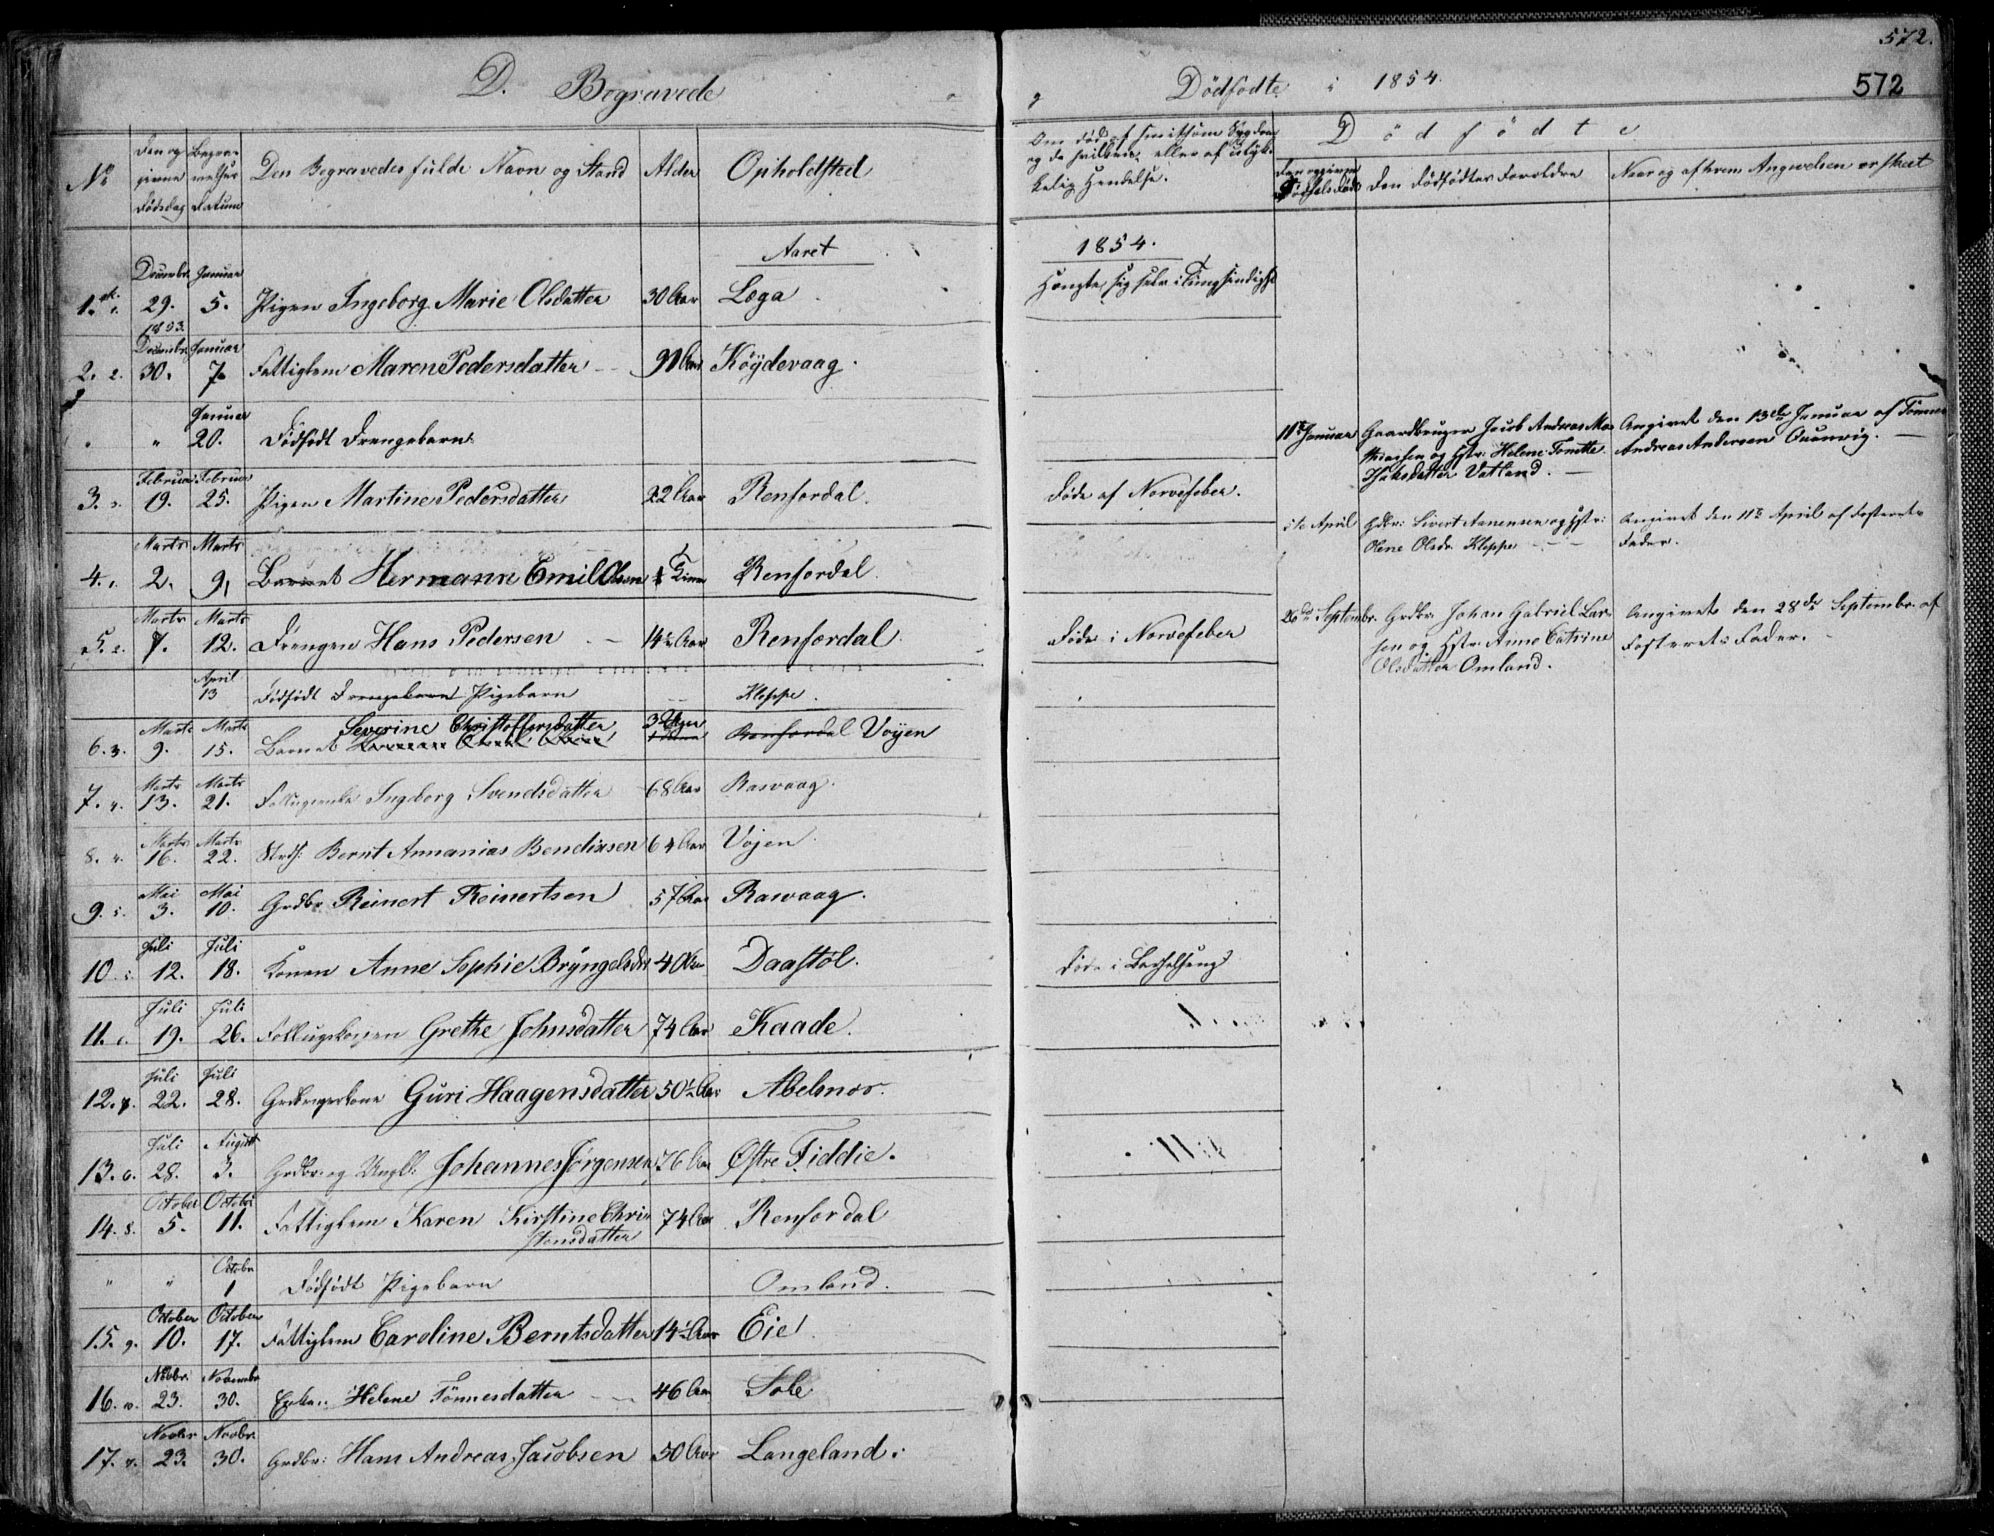 572.
572
D. Begravede o
g Dödfödte i 1854.
No
Den opgivne Dødsdag
Begravelses Datum
Den Begravedes fulde Navn og Stand
Alder
Opholdssted
Om död af smitsom Sygdom og da hvilken, eller af ulykkelig Hendelse.
D ö d f ö d t e
Den Dödfödtes Forældre
Naar og af hvem Angivelsen er skeet
Aaret 1854.
1. 1. Decembr. 29. 1853. Januar 5. Pigen Ingeborg Marie Olsdatter 30 Aar Lega Hengte sig selv i Tungsindighed
2. 2. Decembr. 30. Januar 7. Fattiglem Maren Pedersdatter — 91 Aar Köÿdevaag.
" Januar 20. Dödfödt Drengebarn
Januar Gaardbruger Jacob Andreas Ma-
thiassen og Hstr. Helene Tomette
Vatland. —
Angivet den 13de Januar af
Andreas Andersen —
3. Februar 19. Februar 25. Pigen Martine Pedersdatter 22 Aar Rensordal. Döde af Nervefeber.
April Gdbr: Sivert Aanensen og Hstr:
Olene Olsdr. Kleppe — — —
Angivet den 11te April af Fosterets
Fader.
4. 1. Marts 2. Marts 9. Barnet Hermann Emil Olsen Rensordal.
5. 2. Marts 7. Marts 12. Drengen Hans Pedersen — 14½ Aar Rensordal. Döde i Nervefeber
26de Septembr. Grdbr. Johan Gabriel Lar-
sen og Hstr. Anne Catrine
Olsdatter Omland.
Angivet den 28de Septembr. af
Fosterets Fader.
April 13 Dödfödt Drengebarn Pigebarn Kleppe.
6. 3. Marts 9. Marts 15. Barnet Severine Christoffersdatter 3 Uger Rensordal Voÿen
7. 4. Marts 13. Marts 21. Ingeborg Svendsdatter 68 Aar Rasvaag.
8. 4. Marts 16. Marts 22. Bernt Annanias Bendixsen 64 Aar Vöjen
9. 5. Mai 3. Mai 10. Grdbr. Reinert Reinertsen 57 Aar Rasvaag.
10. 5. Juli 12. Juli 18. Konen Anne Sophie Brÿngelsdr 40 Aar Daastöl. Döde i Barselseng
11. 6. Juli 19. Juli 26. Grethe Johnsdatter 74 Aar Kaade.
12. 7. Juli 22. Juli 28. Guri Haagensdatter 50½ Aar Abelsnes.
13. 6. Juli 28. August 3. Grdbr. og Johannes Jörgensen 76 Aar Östre Fiddie.
14. 8. October 5. Octobr 11. Fattiglem Karen Kirstine Chri-
stensdatter 74 Aar Rensordal
" " Octobr 1 Dödfödt Pigebarn Omland.
15. 9. October 10. October 17. Fattiglem Caroline Berntsdatter 14½ Aar Eie
16. 10. Novbr. 23. Novembr. 30. Helene Tönnesdatter — 46 Aar Sole
17. 7. Novbr. 23. Novbr. 30. Grdbr: Hans Andreas Jacobsen 50 Aar Langeland.